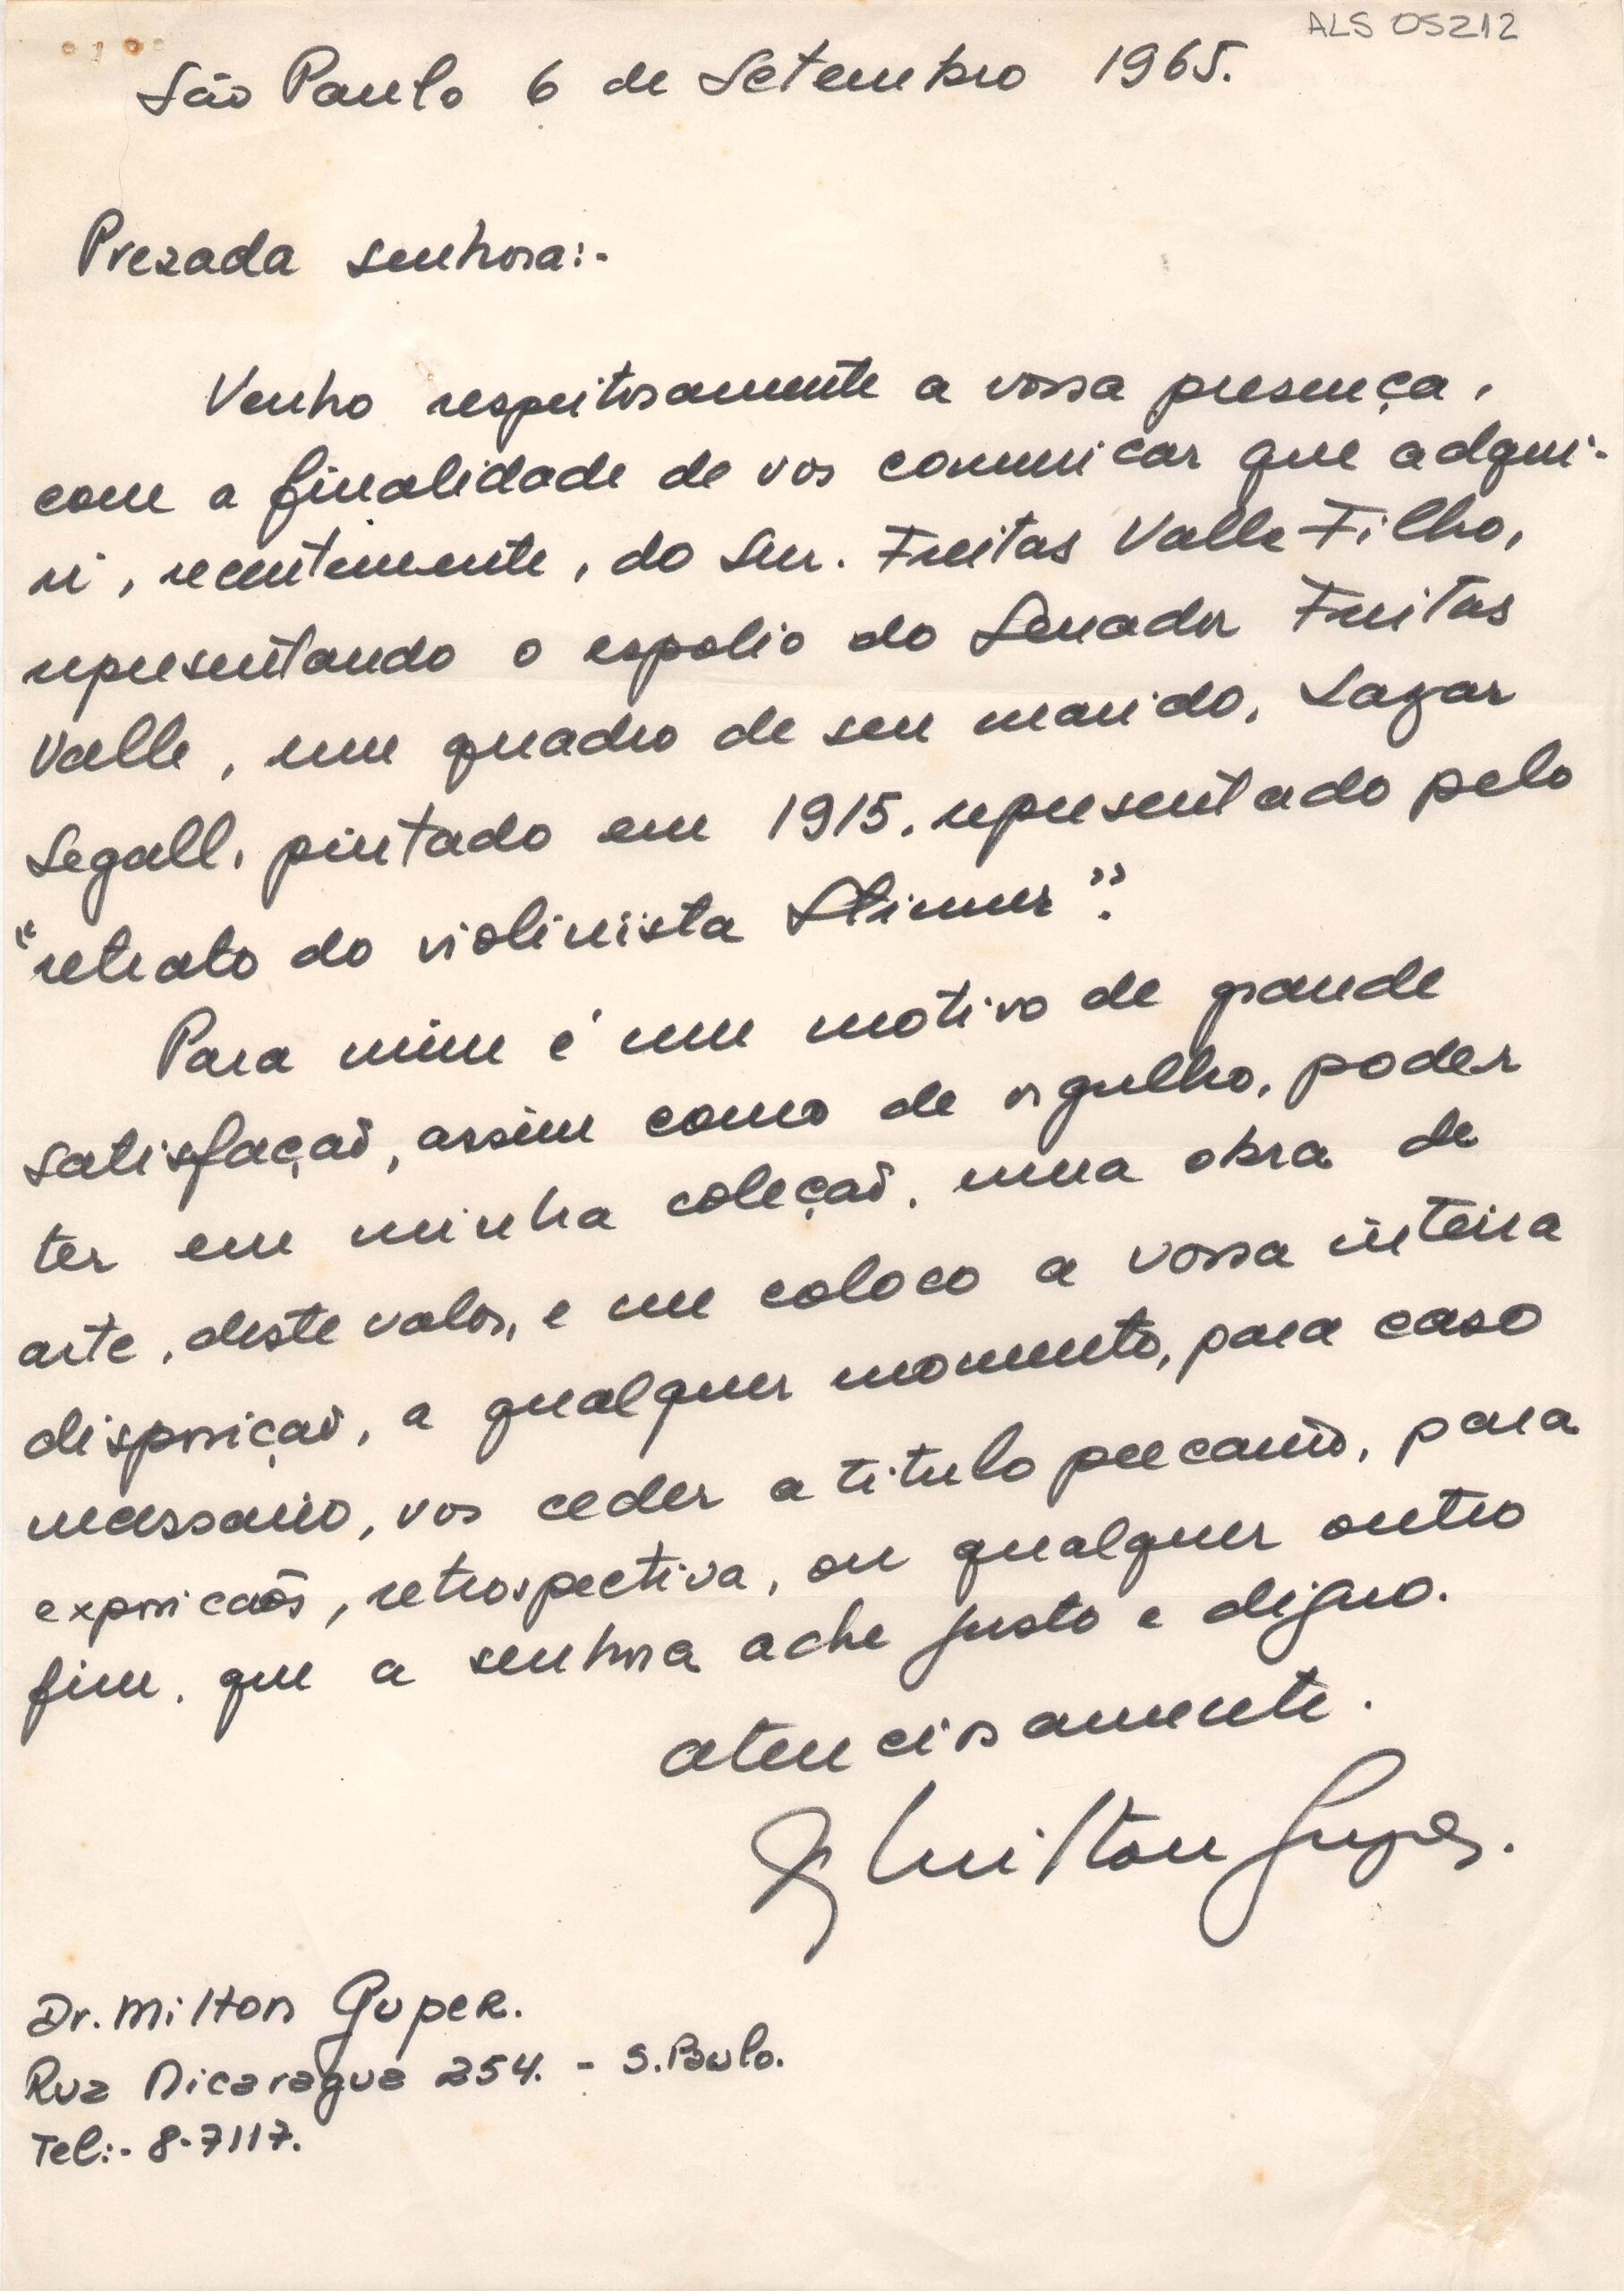 ALS 05212
São Paulo 6 de Setembro 1965.
Prezada senhora:-
Venho respeitosamente a vossa presença,
com a finalidade de vos comunicar que adqui-
ri, recentemente, do Snr. Freitas Valle Filho,
representando o espolio do Senador Freitas
Valle, um quadro de seu marido, Lazar
Segall, pintado em 1915, representado pelo
"retrato do violinista Stimer".
Para mim é um motivo de grande
satisfação, assim como de orgulho, poder
ter em minha coleção, uma obra de
arte, deste valor, e me coloco a vossa inteira
disposição, a qualquer momento, para caso
necessario, vos ceder a titulo precario, para
exposicaões, retrospectiva, ou qualquer outro
fim, que a senhora ache justo e digno.
atenciosamente.
Milton Guper.
Dr. Milton Guper.
Rua Nicaragua 254. - S. Paulo.
Tel:- 8-7117.